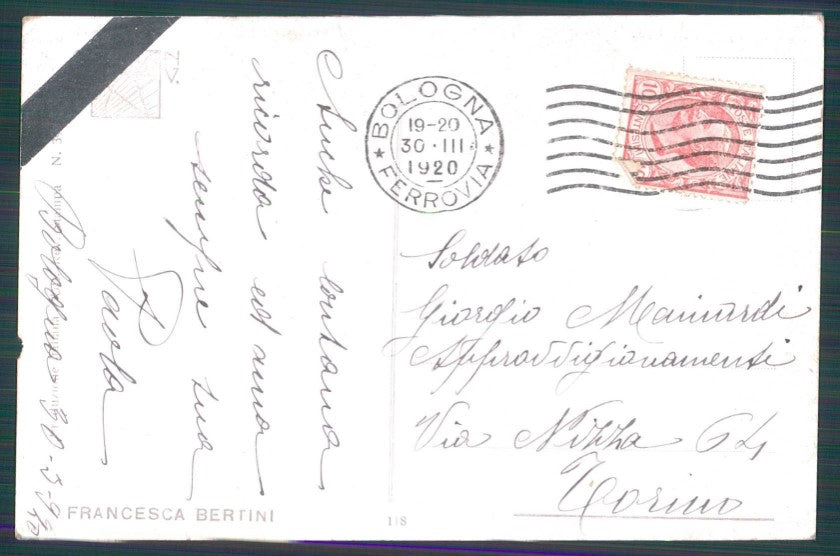 Anche lontana
ricorda ed ama
sempre sua
Paola
Bologna 30-3-920
N. 3
FRANCESCA BERTINI
118
BOLOGNA
19-20
30·III
1920
FERROVIA
Soldato
Giorgio Mainardi
Approvvigionamenti
Via Nizza 64
Torino